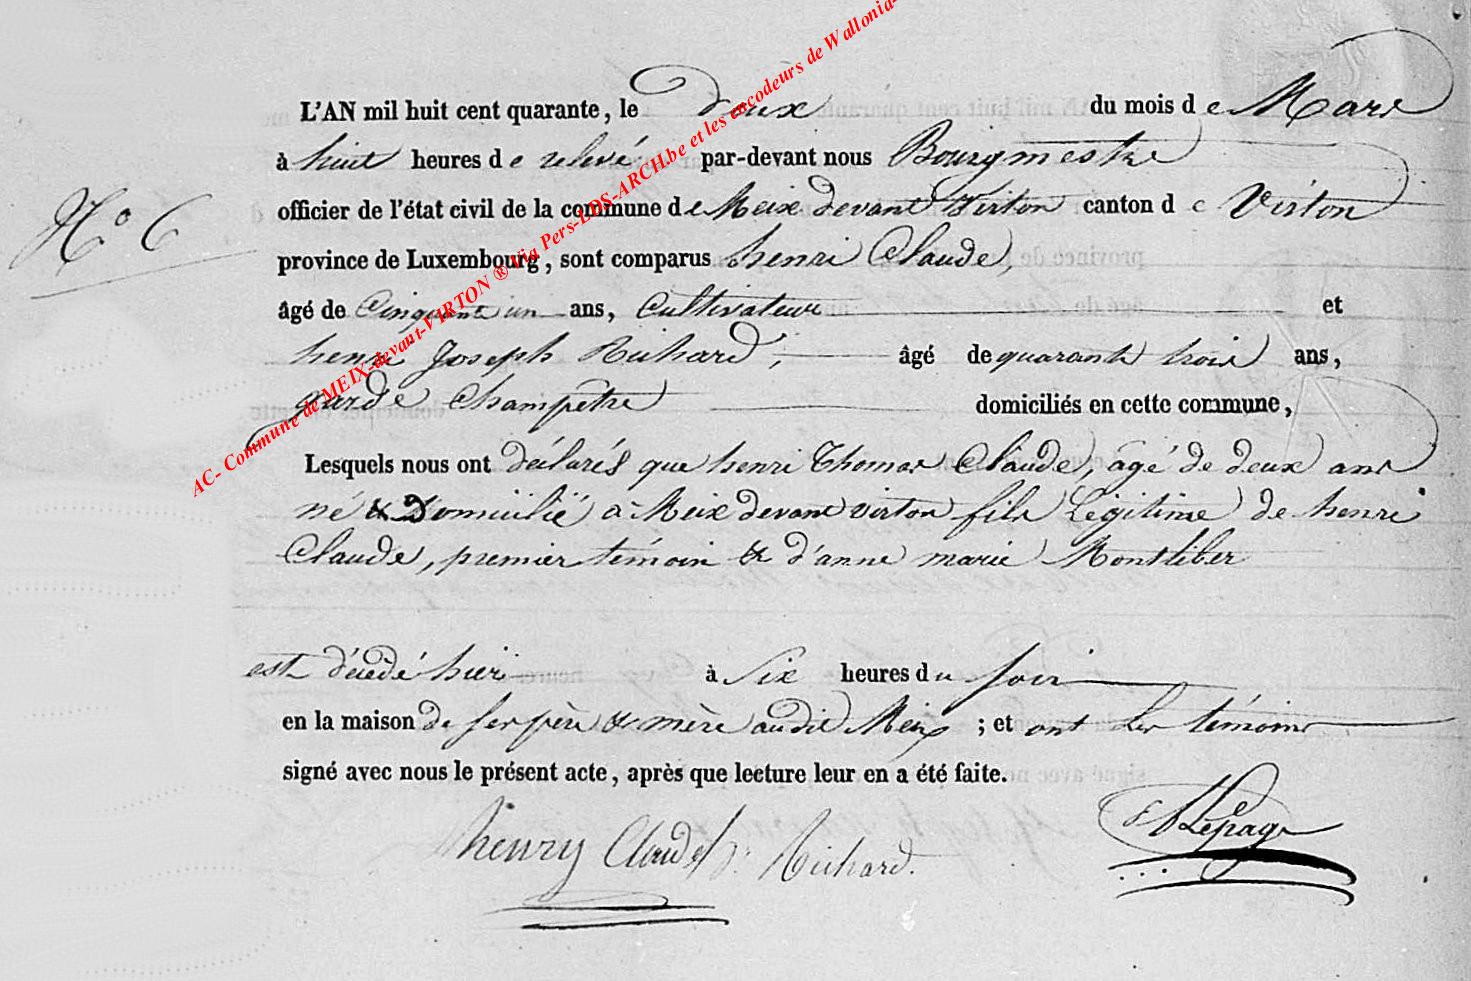 L'AN mil huit cent quarante, le deux du mois de Mars
à huit heures de relevé par-devant nous Bourgmestre
N° 6
officier de l'état civil de la commune de Meix devant Virton canton de Virton
province de Luxembourg, sont comparus henri Claude,
âgé de Cinquante un ans, Cultivateur et
henri Joseph Richard, âgé de quarante trois ans,
garde Champêtre domiciliés en cette commune,
Lesquels nous ont déclarés que henri Thomas Claude, âgé de deux ans
né & Domicilié à Meix devant virton fils Légitime de henri
Claude, premier témoin & d'anne marie Montleber
est décédé hier à Six heures du soir
en la maison de ses père & mère audit Meix ; et ont les témoins
signé avec nous le présent acte, après que lecture leur en a été faite.
henry Claude Richard. Lepage
AC- Commune de MEIX-devant-VIRTON ® Via Pers-LDS-ARCH.be et les encodeurs de Wallonia-